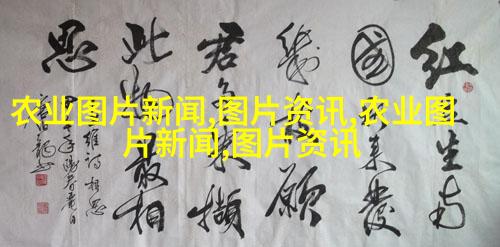 农业图片新闻,图片资讯,农业图
片新闻,图片资讯
红豆生南
國春来發
幾枝願
君多采撷
此物最相
思